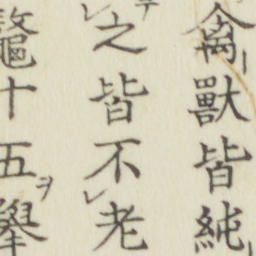 禽獸皆純
之皆不老
鼇十五舉